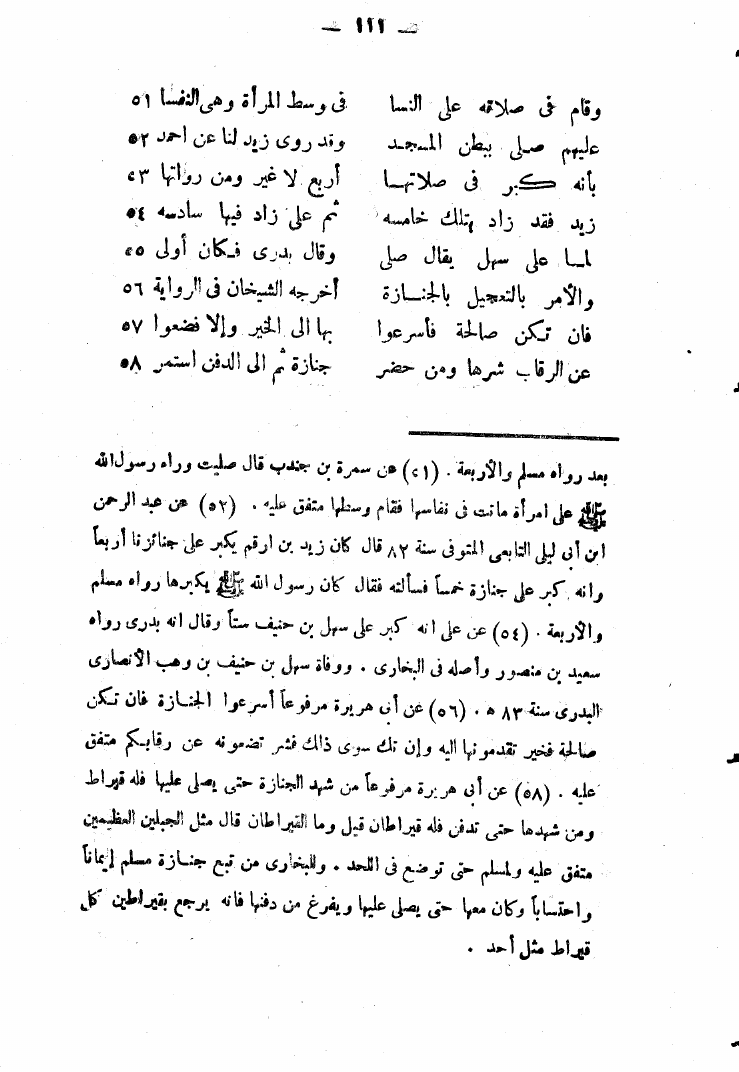 — ١١١ —
وقام فى صلاته على النسا فى وسط المرأة وهى النفسا ٥١
عليهم صلى ببطن المسجد وقد روى زيد لنا عن احمد ٥٢
بأنه كبر فى صلاتها أربع لا غير ومن رواتها ٥٣
زيد فقد زاد بتلك خامسه ثم على زاد فيها سادسه ٥٤
لما على سهل يقال صلى وقال بدرى فكان أولى ٥٥
والأمر بالتعجيل بالجنازة أخرجه الشيخان فى الرواية ٥٦
فان تكن صالحة فأسرعوا بها الى الخير وإلا فضعوا ٥٧
عن الرقاب شرها ومن حضر جنازة ثم الى الدفن استمر ٥٨
بعد رواه مسلم والأربعة . (٥١) عن سمرة بن جندب قال صليت وراء رسول الله
ﷺ على امرأة ماتت فى نفاسها فقام وسطها متفق عليه . (٥٢) عن عبد الرحمن
ابن أبى ليلى التابعى المتوفى سنة ٨٢ قال كان زيد بن ارقم يكبر على جنائزنا أربعاً
وانه كبر على جنازة خمساً فسألته فقال كان رسول الله ﷺ يكبرها رواه مسلم
والاربعة . (٥٤) عن على انه كبر على سهل بن حنيف ستاً وقال انه بدرى رواه
سعيد بن منصور وأصله فى البخارى . ووفاة سهل بن حنيف بن وهب الأنصارى
البدرى سنة ٨٣ ه . (٥٦) عن أبى هريرة مرفوعاً أسرعوا الجنازة فان تكن
صالحة فخير تقدمونها اليه وإن تك سوى ذالك فشر تضعونه عن رقابكم متفق
عليه . (٥٨) عن أبى هريرة مرفوعاً من شهد الجنازة حتى يصلى عليها فله قيراط
ومن شهدها حتى تدفن فله قيراطان قيل وما القيراطان قال مثل الجبلين العظيمين
متفق عليه ولمسلم حتى توضع فى اللحد . وللبخارى من تبع جنازة مسلم إيماناً
واحتساباً وكان معها حتى يصلى عليها ويفرغ من دفنها فانه يرجع بقيراطين كل
قيراط مثل أحد .